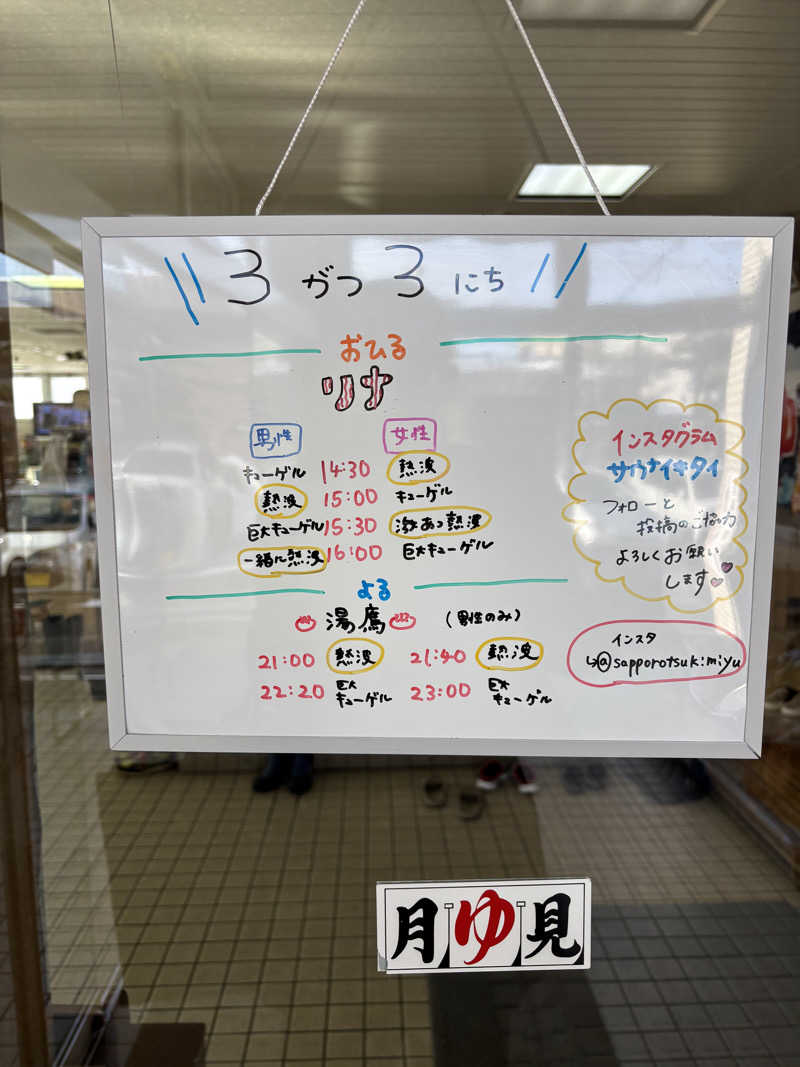 \\ 3がつ3にち //
おひる
リナ
男性 女性
キューゲル 14:30 熱波
熱波 15:00 キューゲル
巨大キューゲル 15:30 激あつ熱波
一緒に熱波 16:00 巨大キューゲル
よる
♨湯鷹♨ (男性のみ)
21:00 熱波 21:40 熱波
22:20 巨大キューゲル 23:00 巨大キューゲル
インスタグラム
サウナイキタイ
フォローと
投稿のご協力
よろしくお願い
します
インスタ
↳@sapporotsukimiyu
月ゆ見